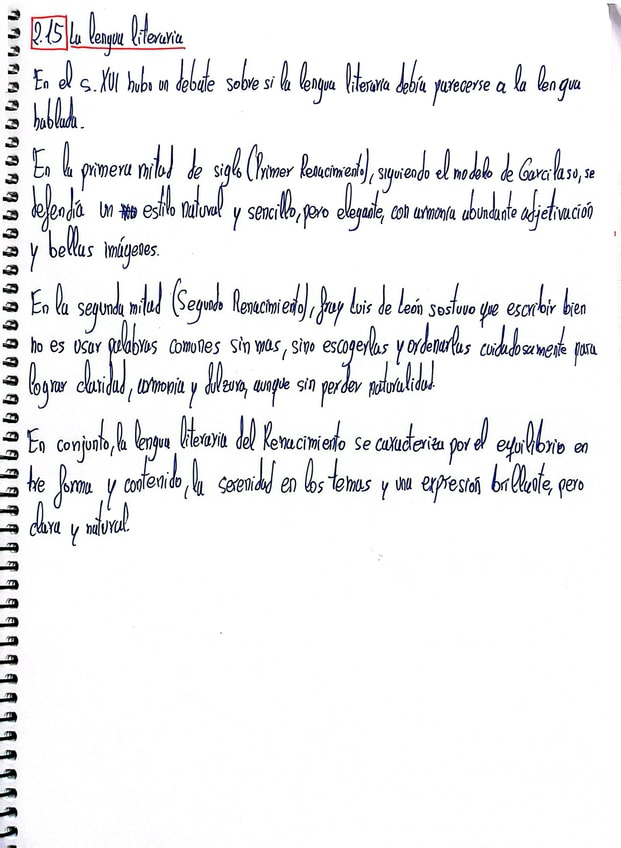 2.15 La lengua literaria
En el s. XVI hubo un debate sobre si la lengua literaria debía parecerse a la lengua
hablada.
En la primera mitad de siglo (Primer Renacimiento), siguiendo el modelo de Garcilaso, se
defendía un estilo natural y sencillo, pero elegante, con armonía abundante adjetivación
y bellas imágenes.
En la segunda mitad (Segundo Renacimiento), fray Luis de León sostuvo que escribir bien
no es usar palabras comunes sin mas, sino escogerlas y ordenarlas cuidadosamente para
lograr claridad, armonía y dulzura, aunque sin perder naturalidad.
En conjunto, la lengua literaria del Renacimiento se caracteriza por el equilibrio en
tre forma y contenido, la serenidad en los temas y una expresión brillante, pero
clara y natural.